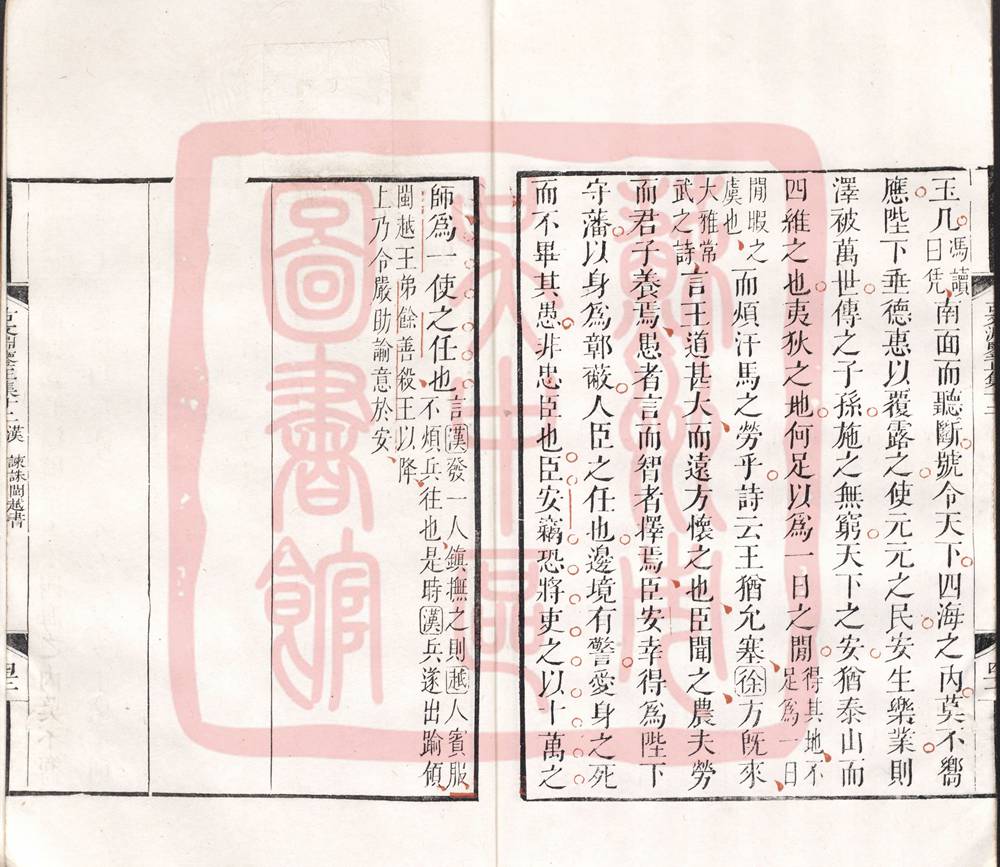 玉几馮讀曰凭南面而聽斷號令天下四海之内莫不嚮
應陛下垂德惠以覆露之使元元之民安生樂業則
澤被萬世傳之子孫施之無窮天下之安猶泰山而
四維之也夷狄之地何足以爲一日之閒得其地不足爲一日
閒暇之虞也而煩汗馬之勞乎詩云王猶允塞徐方既來
大雅常武之詩言王道甚大而遠方懷之也臣聞之農夫勞
而君子養焉愚者言而智者擇焉臣安幸得爲陛下
守藩以身爲鄣蔽人臣之任也邊境有警愛身之死
而不畢其愚非忠臣也臣安竊恐將吏之以十萬之
師爲一使之任也言漢發一人鎭撫之則越人賓服不煩兵往也是時漢兵遂出踰領
閩越王弟餘善殺王以降
上乃令嚴助諭意於安
漢
諫誅閩越書
蘇州市
圖書館